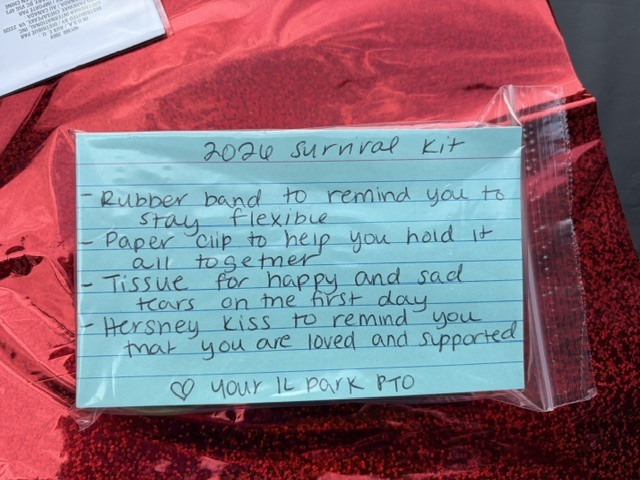 2026 Survival Kit
- Rubber band to remind you to
stay flexible
- Paper clip to help you hold it
all together
- Tissue for happy and sad
tears on the first day
- Hersney Kiss to remind you
that you are loved and supported
♡ your IL Park PTO